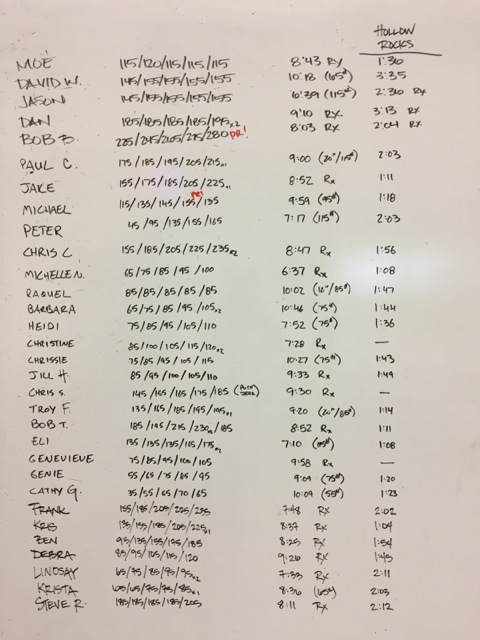 HOLLOW
ROCKS
MOE 115/120/115/115/115 8:43 RX 1:30
DAVID W. 145/155/155/155/155 10:18 (65#) 3:35
JASON 145/155/155/155/155 10:39 (115#) 2:30 RX
DAN 185/185/185/185/195x2 9:10 RX 3:13 RX
BOB B. 225/245/265/275/280 PR! 8:03 RX 2:04 RX
PAUL C. 175/185/195/205/215x1 9:00 (20"/115#) 2:03
JAKE 155/175/185/205/225x1 8:52 Rx 1:11
MICHAEL 115/135/145/155/135 PR! 9:59 (95#) 1:18
PETER 45/95/135/155/165 7:17 (115#) 2:03
CHRIS C. 155/185/205/225/235x2 8:47 Rx 1:56
MICHELLE N. 65/75/85/95/100 6:37 Rx 1:08
RAQUEL 85/85/85/85/85 10:02 (16"/85#) 1:47
BARBARA 65/75/85/95/105x2 10:46 (75#) 1:44
HEIDI 75/85/95/105/110 7:52 (75#) 1:36
CHRISTINE 85/100/105/115/120x2 7:28 Rx —
CHRISSIE 75/85/95/105/115 10:27 (75#) 1:43
JILL H. 85/95/100/105/110 9:33 Rx 1:49
CHRIS S. 145/155/165/175/185 9:30 Rx —
TROY F. 135/165/185/195/195x1 9:20 (20"/85#) 1:14
BOB T. 185/195/215/230x2/185 8:52 Rx 1:11
ELI 135/135/135/115/175x2 7:10 1:08
GENEVIEVE 75/85/95/100/105 9:58 Rx —
GENIE 55/65/75/85/95 9:09 (75#) 1:20
CATHY G. 35/55/65/70/65 10:09 (55#) 1:23
FRANK 155/185/205/225/235 7:48 RX 2:02
KRIS 135/155/185/205/225x1 8:37 RX 1:04
ZEN 95/135/155/175/185 8:25 RX 1:54
DEBRA 85/95/105/115/120 9:26 RX 1:45
LINDSAY 65/75/85/95/95x2 7:33 RX 2:11
KRISTA 65/65/75/75/85x1 8:36 (65#) 2:03
STEVE R. 185/185/185/185/205 8:11 RX 2:12